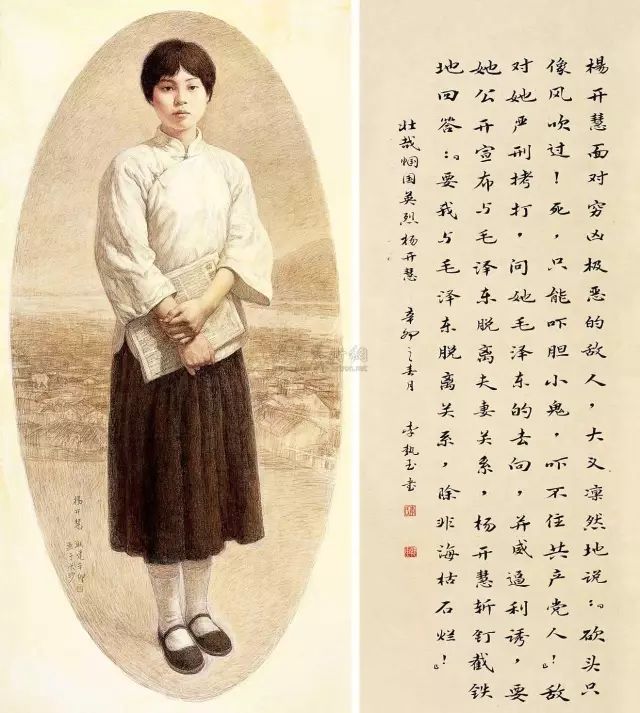 楊开慧面对穷凶极恶的敌人，大义凛然地说：“砍头只
像风吹过！死，只能吓胆小鬼，吓不住共产党人！”敌
对她严刑拷打，问她毛泽东的去向，并威逼利诱，要
她公开宣布与毛泽东脱离夫妻关系，杨开慧斩钉截铁
地回答：“要我与毛泽东脱离关系，除非海枯石烂！”
壮哉 国英烈杨开慧 辛卯之春月 李 玉书
杨开慧